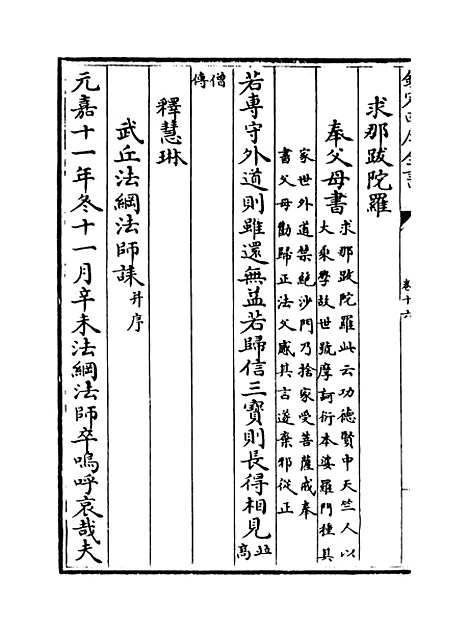 欽定四庫全書
卷十六
求那跋陀羅
奉父母書
求那跋陀羅此云功德賢中天竺人以
大乘學故世號摩訶衍本婆羅門種其
家世外道禁絕沙門乃捨家受菩薩戒奉
書父母勸歸正法父感其古遂棄邪從正
若專守外道則雖還無益若歸信三寶則長得相見
竝高
僧傳
釋慧琳
武丘法綱法師誄并序
元嘉十一年冬十一月辛未法綱法師卒嗚呼哀哉夫